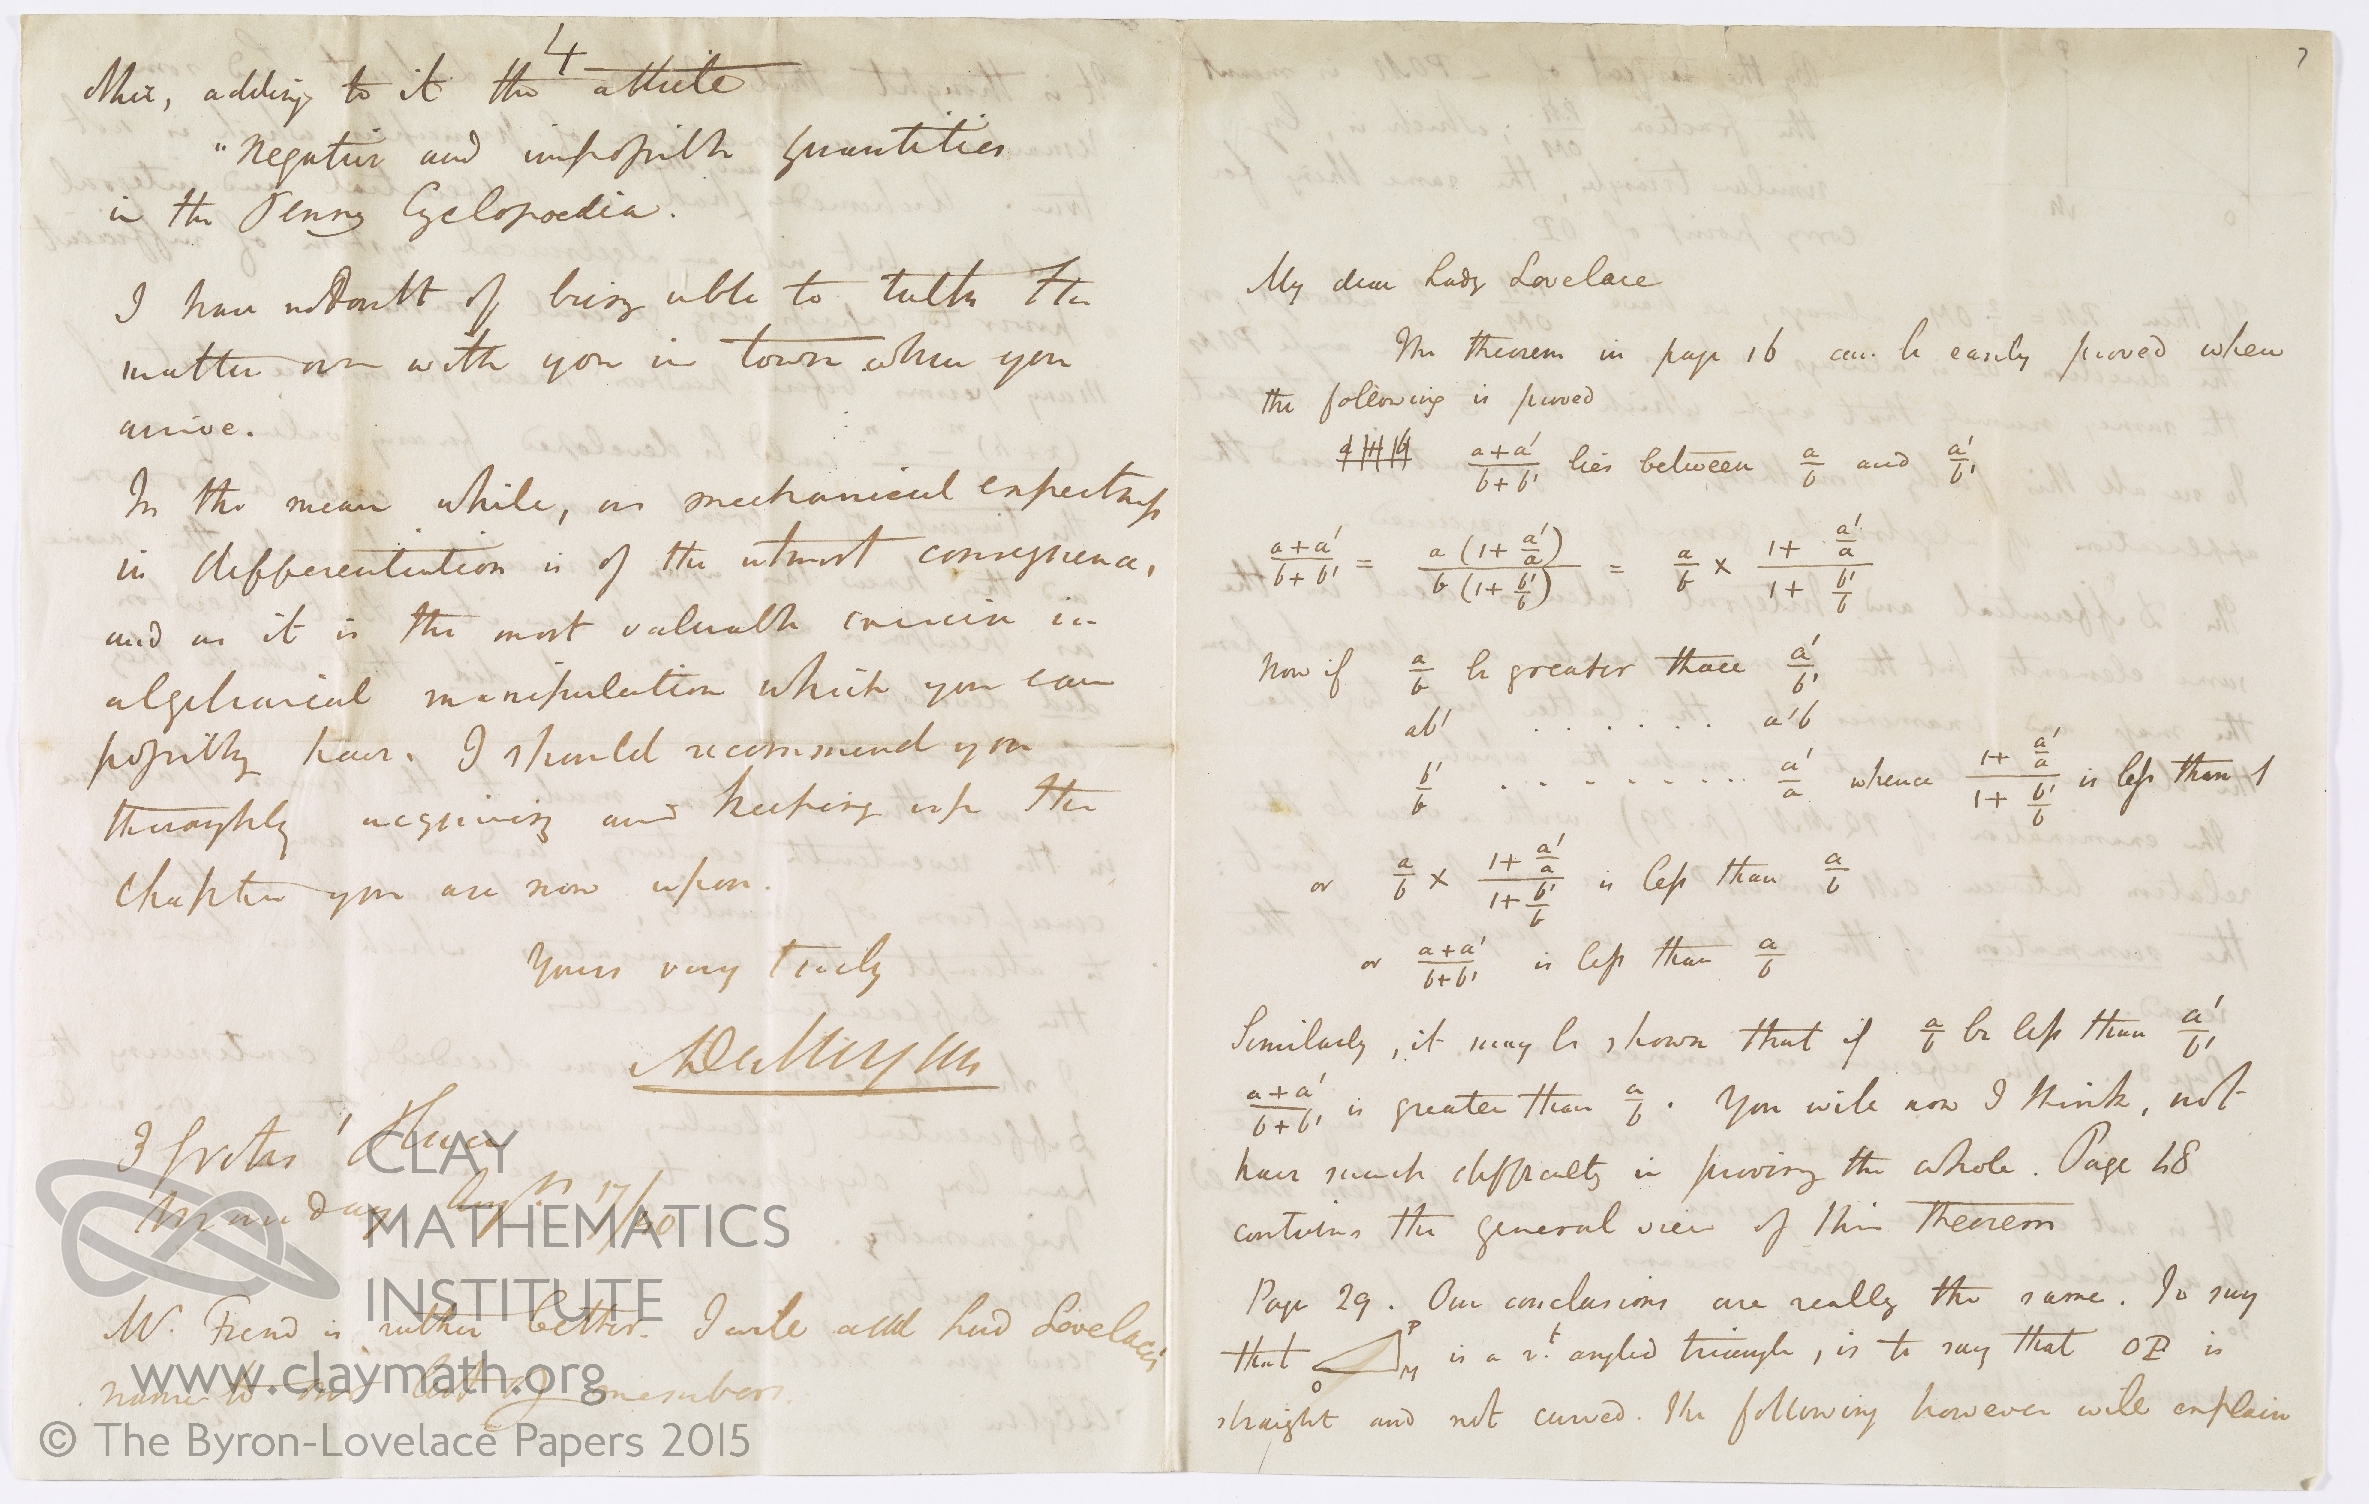 4
this, adding to it the article
"Negative and impossible quantities
in the Penny Cyclopoedia.
I have no doubt of being able to talk the
matter over with you in town when you
arrive.
In the mean while, as mechanical expertness
in differentiation is of the utmost consequence,
and as it is the most valuable exercise in
algebraical manipulation which you can
possibly have, I should recommend you
thoroughly acquiring and keeping up the
Chapter you are now upon.
Yours very truly
ADeMorgan
3 Grotes' Place
Monday Augst 17/40
Mr. Frend is rather better. I will add Lord Lovelace's
name to our list of members.
CLAY
MATHEMATICS
INSTITUTE
www.claymath.org
© The Byron-Lovelace Papers 2015
My dear Lady Lovelace
The theorem in page 16 can be easily proved when
the following is proved
(a+a')/(b+b') lies between a/b and a'/b'
(a+a')/(b+b') = a(1+a'/a)/b(1+b'/b) = a/b × (1+a'/a)/(1+b'/b)
Now if a/b be greater than a'/b'
ab' . . . . . . a'b
b'/b . . . . . . . . a'/a whence (1+a'/a)/(1+b'/b) is less than 1
or a/b × (1+a'/a)/(1+b'/b) is less than a/b
or (a+a')/(b+b') is less than a/b
Similarly, it may be shown that if a/b be less than a'/b'
(a+a')/(b+b') is greater than a/b. You will now I think, not
have much difficulty in proving the whole. Page 48
contains the general view of this theorem
Page 29. Our conclusions are really the same. To say
that O P M is a rt. angled triangle, is to say that OP is
straight and not curved. The following however will explain